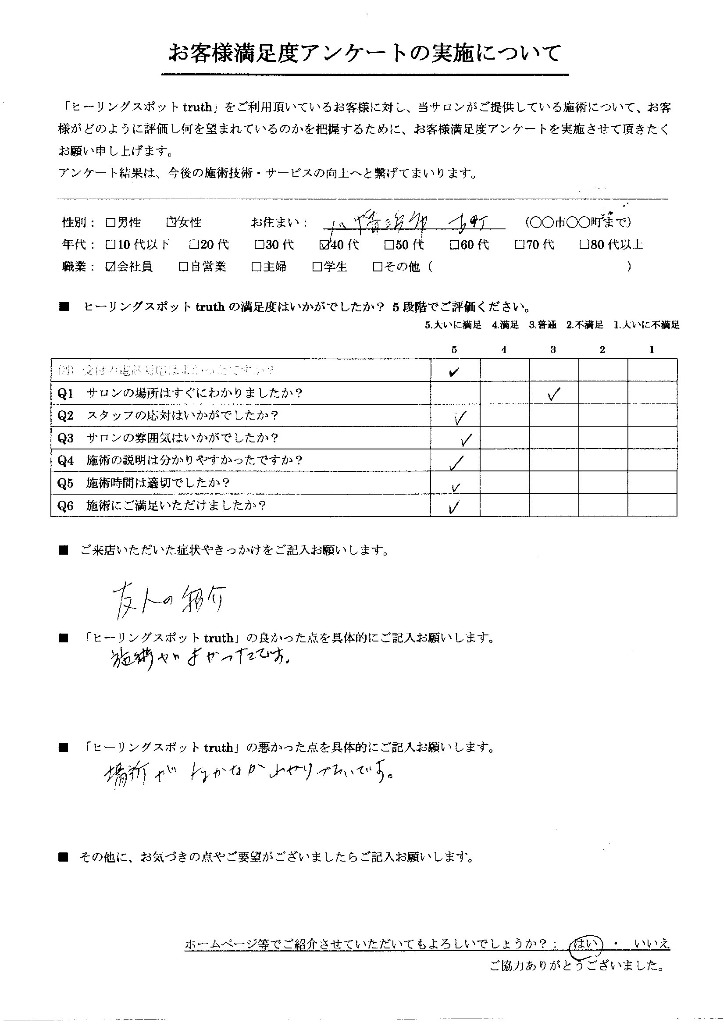 お客様満足度アンケートの実施について
「ヒーリングスポット truth」をご利用頂いているお客様に対し、当サロンがご提供している施術について、お客
様がどのように評価し何を望まれているのかを把握するために、お客様満足度アンケートを実施させて頂きたく
お願い申し上げます。
アンケート結果は、今後の施術技術・サービスの向上へと繋げてまいります。
性別：□男性 ☑女性 お住まい： (〇〇市〇〇町まで)
年代：□10代以下 □20代 □30代 ☑40代 □50代 □60代 □70代 □80代以上
職業：☑会社員 □自営業 □主婦 □学生 □その他 ( )
■ ヒーリングスポット truth の満足度はいかがでしたか？ 5 段階でご評価ください。
5.大いに満足 4.満足 3.普通 2.不満足 1.大いに不満足
5 4 3 2 1
✓
Q1 サロンの場所はすぐにわかりましたか？ ✓
Q2 スタッフの応対はいかがでしたか？ ✓
Q3 サロンの雰囲気はいかがでしたか？ ✓
Q4 施術の説明は分かりやすかったですか？ ✓
Q5 施術時間は適切でしたか？ ✓
Q6 施術にご満足いただけましたか？ ✓
■ ご来店いただいた症状やきっかけをご記入お願いします。
友人の紹介
■ 「ヒーリングスポット truth」の良かった点を具体的にご記入お願いします。
施術がよかったです。
■ 「ヒーリングスポット truth」の悪かった点を具体的にご記入お願いします。
場所が です。
■ その他に、お気づきの点やご要望がございましたらご記入お願いします。
ホームページ等でご紹介させていただいてもよろしいでしょうか？： はい ・ いいえ
ご協力ありがとうございました。